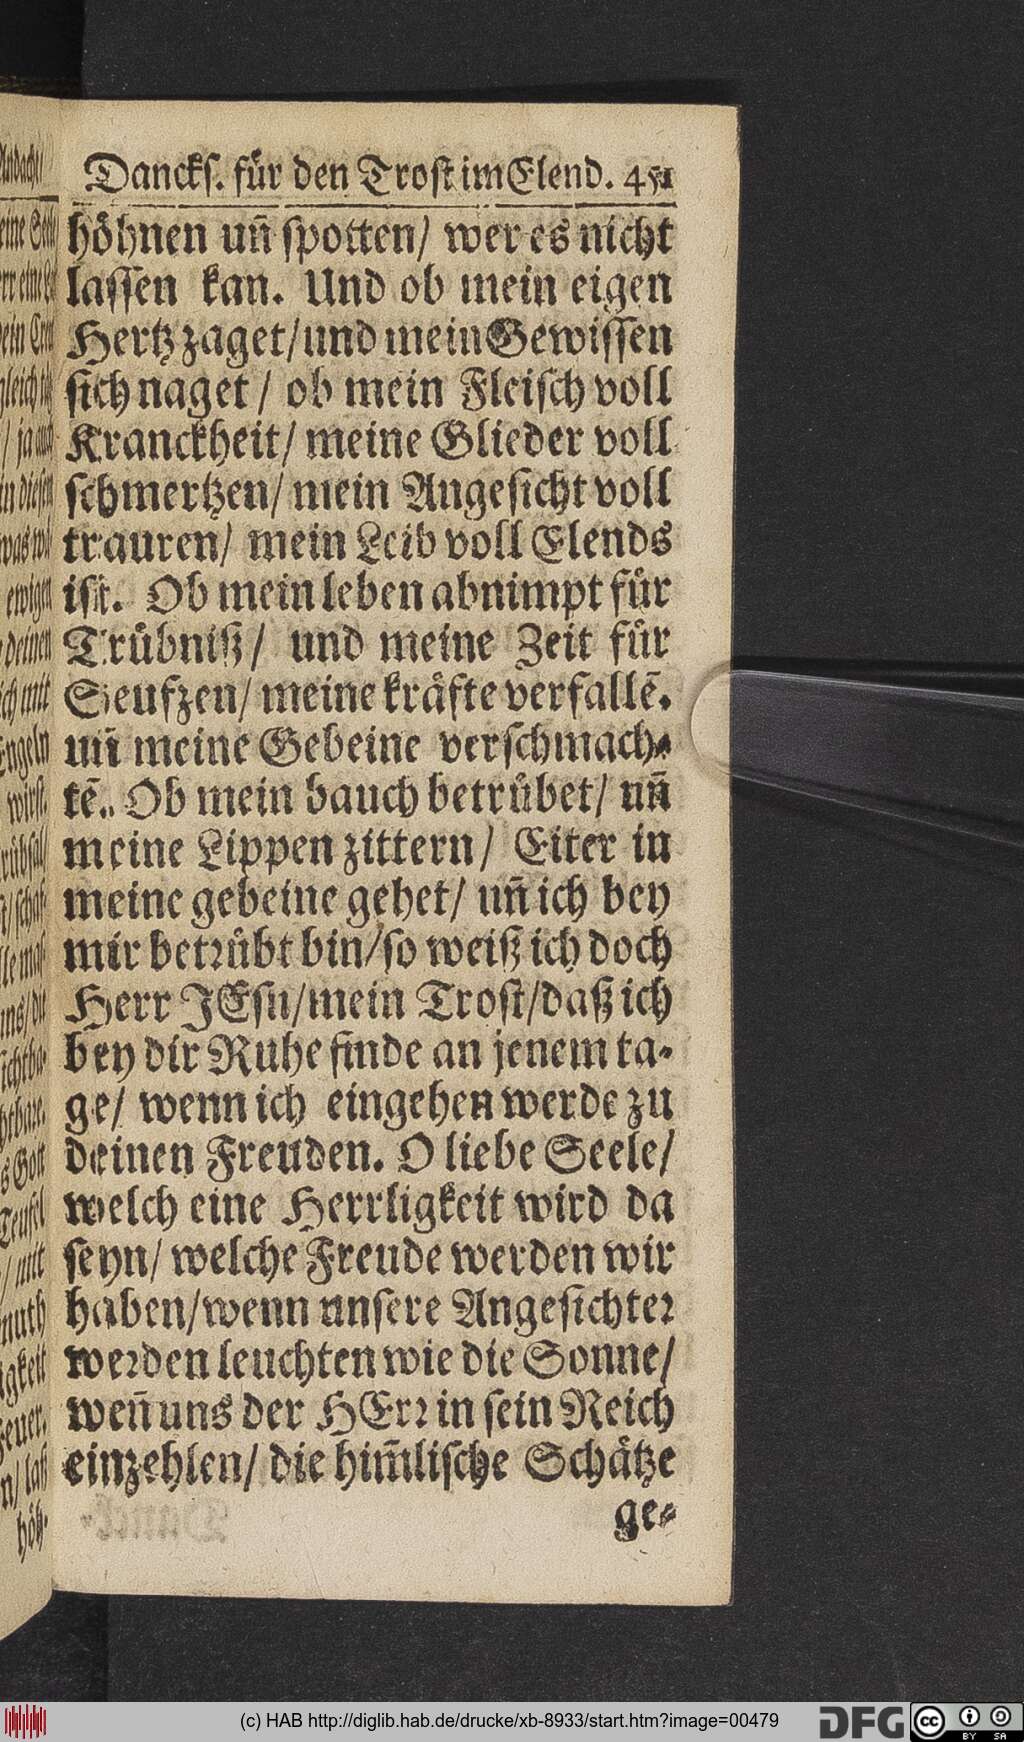 Dancks. fuͤr den Troſt im Elend. 451
hoͤhnen uñ ſpotten/ wer es nicht
laſſen kan. Und ob mein eigen
Hertz zaget/und mein Gewiſſen
ſich naget/ ob mein Fleiſch voll
Kranckheit/ meine Glieder voll
ſchmertzen/ mein Angeſicht voll
trauren/ mein Leib voll Elends
iſt. Ob mein leben abnimpt fuͤr
Truͤbniß/ und meine Zeit fuͤr
Seufzen/ meine kraͤfte verfallẽ.
uñ meine Gebeine verſchmach⸗
tẽ. Ob mein bauch betruͤbet/ uñ
meine Lippen zittern/ Eiter in
meine gebeine gehet/ uñ ich bey
mir betꝛuͤbt bin/ſo weiß ich doch
Herr JEſu/mein Troſt/daß ich
bey dir Ruhe finde an jenem ta⸗
ge/ wenn ich eingehen werde zu
deinen Freuden. O liebe Seele/
welch eine Herrligkeit wird da
ſeyn/ welche Freude werden wir
haben/wenn unſere Angeſichteꝛ
weꝛden leuchten wie die Sonne/
weñ uns der HErꝛ in ſein Reich
einzehlen/ die him̃liſche Schaͤtze
ge⸗
(c) HAB http://diglib.hab.de/drucke/xb-8933/start.htm?image=00479
DFG
cc
BY SA